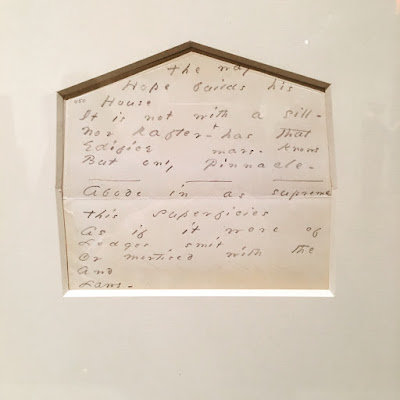 the way
Hope builds his
450 House
It is not with a sill -
Nor Rafter - has that
Edifice mars - Knows
But only Pinnacle -
Abode in as supreme
This superficies
As if it were of
Ledges smit
Or mortised with the
And
Laws -